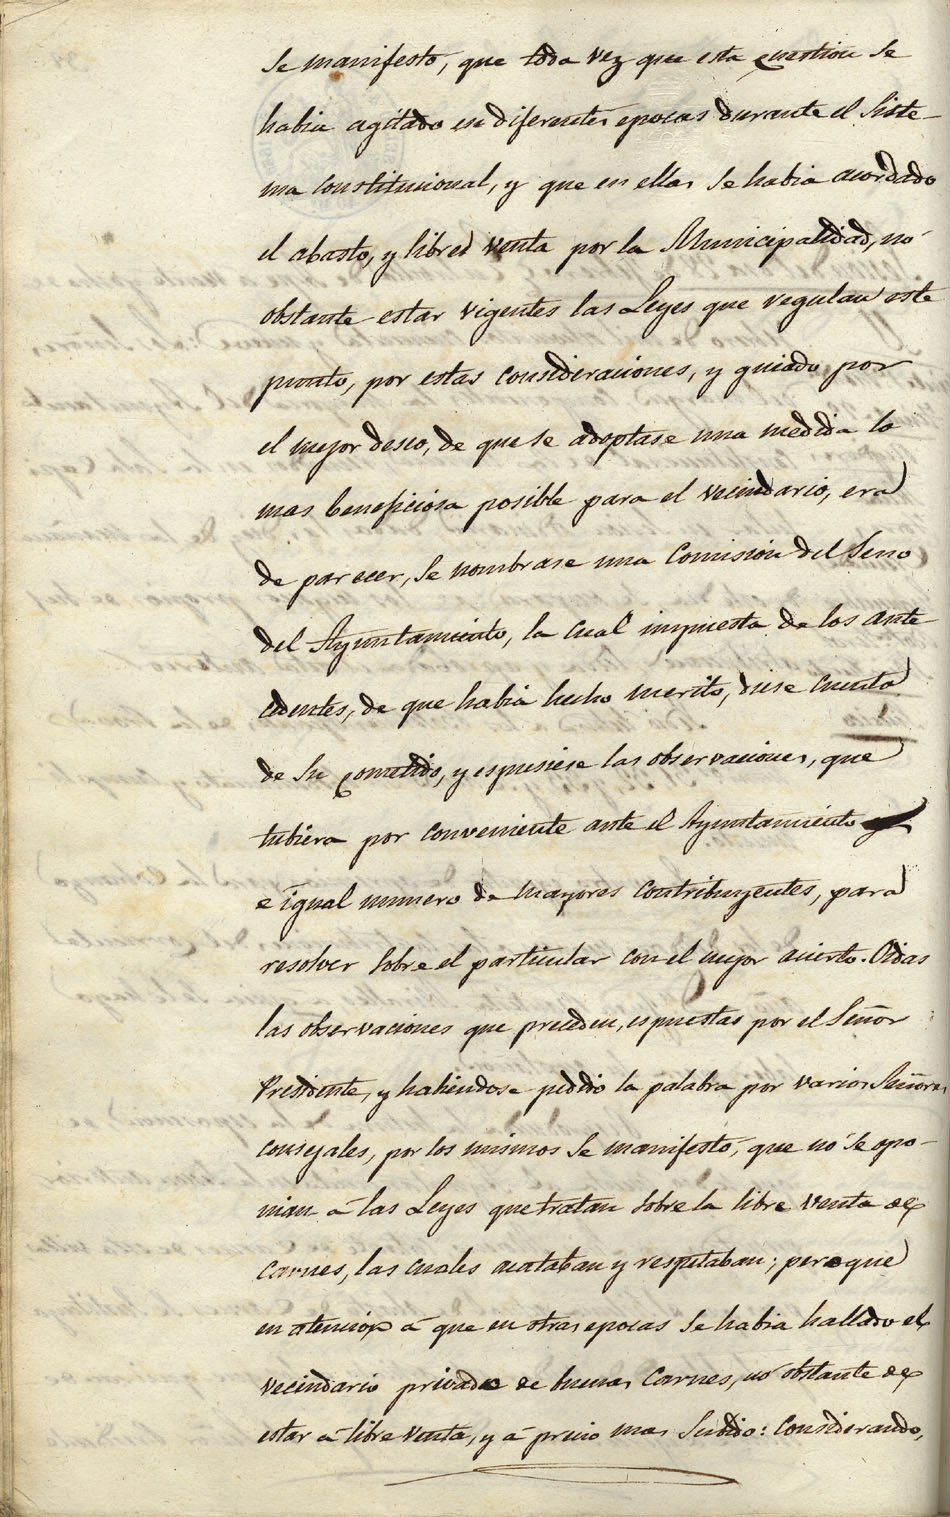 se manifesto, que toda vez que esta question se
habia agitado en diferentes epocas durante el Siste-
ma constitucional, y que en ellas se habia acordado
el abasto, y libred venta por la Municipalidad, nó
obstante estar vigentes las Leyes que regulan este
punto, por estas consideraciones, y guiado por
el mejor deseo, de que se adoptase una medida la
mas beneficiosa posible para el vecindario, era
de parecer, se nombrase una Comision del Seno
del Ayuntamiento, la cual impuesta de los ante
cedentes, de que habia hecho merito, diese cuenta
de su cometido, y espusiese las observaciones, que
tubiera por conveniente ante el Ayuntamiento
e igual numero de mayores contribuyentes, para
resolver sobre el particular con el mejor acierto. Oidas
las observaciones que preceden, espuestas por el Señor
Presidente, y habiendose pedido la palabra por varios Señores
consejales, por los mismos se manifesto, que nó se opo-
nian á las Leyes que tratan sobre la libre venta de
carnes, las cuales acataban y respetaban; pero que
en atencion á que en otras epocas se habia hallado el
vecindario privado de buenas Carnes, nó obstante de
estar á libre venta, y á precio mas subido: Considerando,